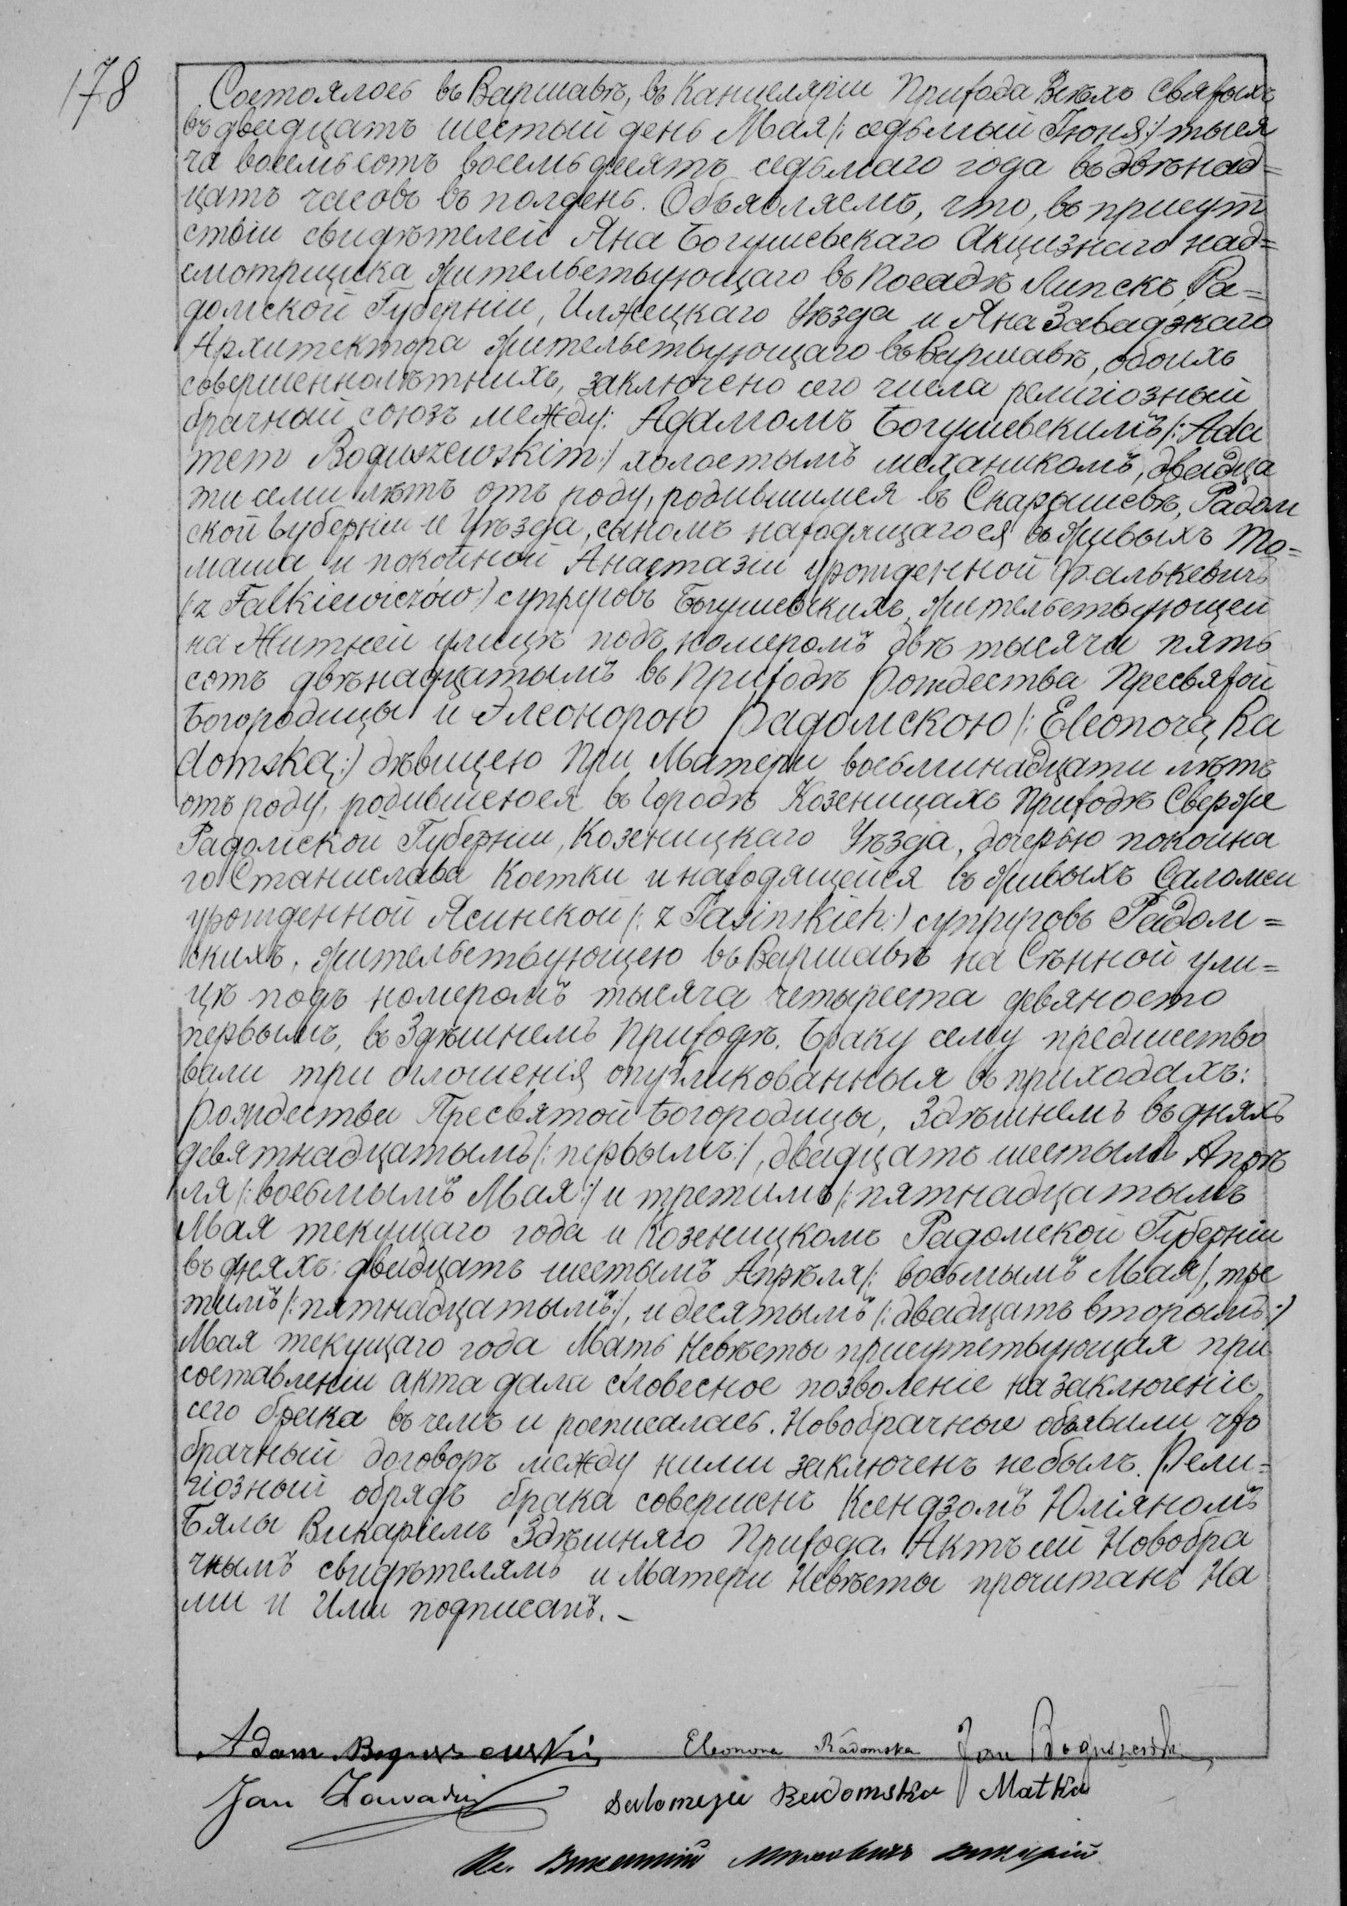 178
Состоялось въ Варшавѣ, въ Канцеляріи Прихода Всѣхъ Святыхъ
въ двадцать шестый день Мая /: седьмый Іюня :/ тыся
ча восемьсотъ восемьдесятъ седьмаго года въ двѣнад=
цать часовъ въ полдень. Объявляемъ, что, въ присут
ствіи свидѣтелей Яна Богушевскаго Акцизнаго над=
смотрщика жительствующаго въ Посадѣ Липскъ, Ра=
домской Губерніи, Илжецкаго Уѣзда и Яна Завадзкаго
Архитектора жительствующаго въ Варшавѣ, обоихъ
совершеннолѣтнихъ, заключено сего числа религіозный
брачный союзъ между: Адамомъ Богушевскимъ /: Ada
mem Boguszewskim :/ холостымъ механикомъ, двадца
ти семи лѣтъ отъ роду, родившимся въ Скарышевѣ, Радом
ской губерніи и Уѣзда, сыномъ находящагося въ живыхъ То=
маша и покойной Анастазіи урожденной Фалькевичъ
(z Falkiewiczów) супруговъ Богушевскихъ, жительствующей
на Житней улицѣ подъ номеромъ двѣ тысячи пять
сотъ двѣнадцатымъ въ Приходѣ Рождества Пресвятой
Богородицы и Элеонорою Радомскою /: Eleonorą Ra
domską :/ дѣвицею При Матери восьминадцати лѣтъ
отъ роду, родившеюся въ Городѣ Козеницахъ Приходѣ Сверже
Радомской Губерніи, Козеницкаго Уѣзда, дочерью покойна
го Станислава Костки и находящейся въ живыхъ Саломеи
урожденной Ясинской /: z Jasinskich :/ супруговъ Радом=
скихъ, жительствующею въ Варшавѣ на Сѣнной ули=
цѣ подъ номеромъ тысяча четыреста девяносто
первымъ, въ Здѣшнемъ Приходѣ. Браку сему предшество
вали три оглошенія опубликованныя въ приходахъ:
Рождества Пресвятой Богородицы, Здѣшнемъ въ дняхъ
девятнадцатымъ /: первымъ :/, двадцать шестымъ Апрѣ
ля /: восьмымъ Мая :/ и третимъ /: пятнадцатымъ
Мая текущаго года и Козеницкомъ Радомской Губерніи
въ дняхъ: двадцать шестымъ Апрѣля /: восьмымъ Мая /, тре
тимъ /: пятнадцатымъ :/, и десятымъ /: двадцать вторымъ :/
Мая текущаго года Мать Невѣсты присутствующая при
составленіи акта дала словесное позволеніе на заключеніе
сего брака въ чемъ и росписалась. Новобрачные объявили что
брачный договоръ между ними заключенъ не былъ. Рели=
гіозный обрядъ брака совершенъ Ксендзомъ Юліяномъ
Бялы Викаріемъ Здѣшняго Прихода. Актъ сей Новобра
чнымъ свидѣтелямъ и Матери Невѣсты прочитанъ На
ми и Ими подписанъ. –
Adam Boguszewski Eleonora Radomska Jan Boguszewski
Jan Zawadzki Salomeja Radomska Matka
Кс. Викентій викарій